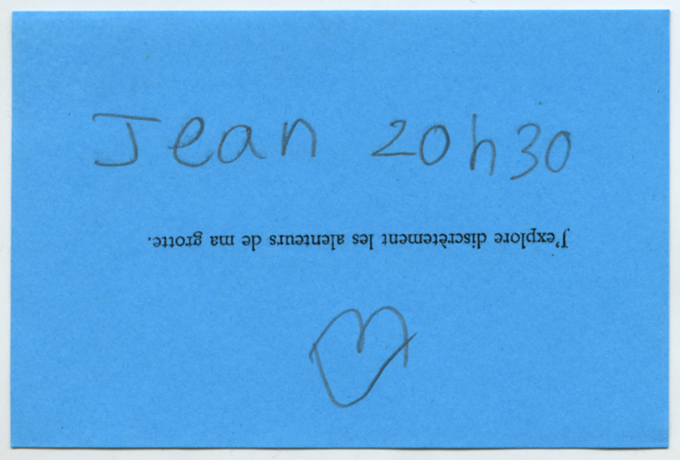 Jean 20h30
J'explore discrètement les alenteurs de ma grotte.